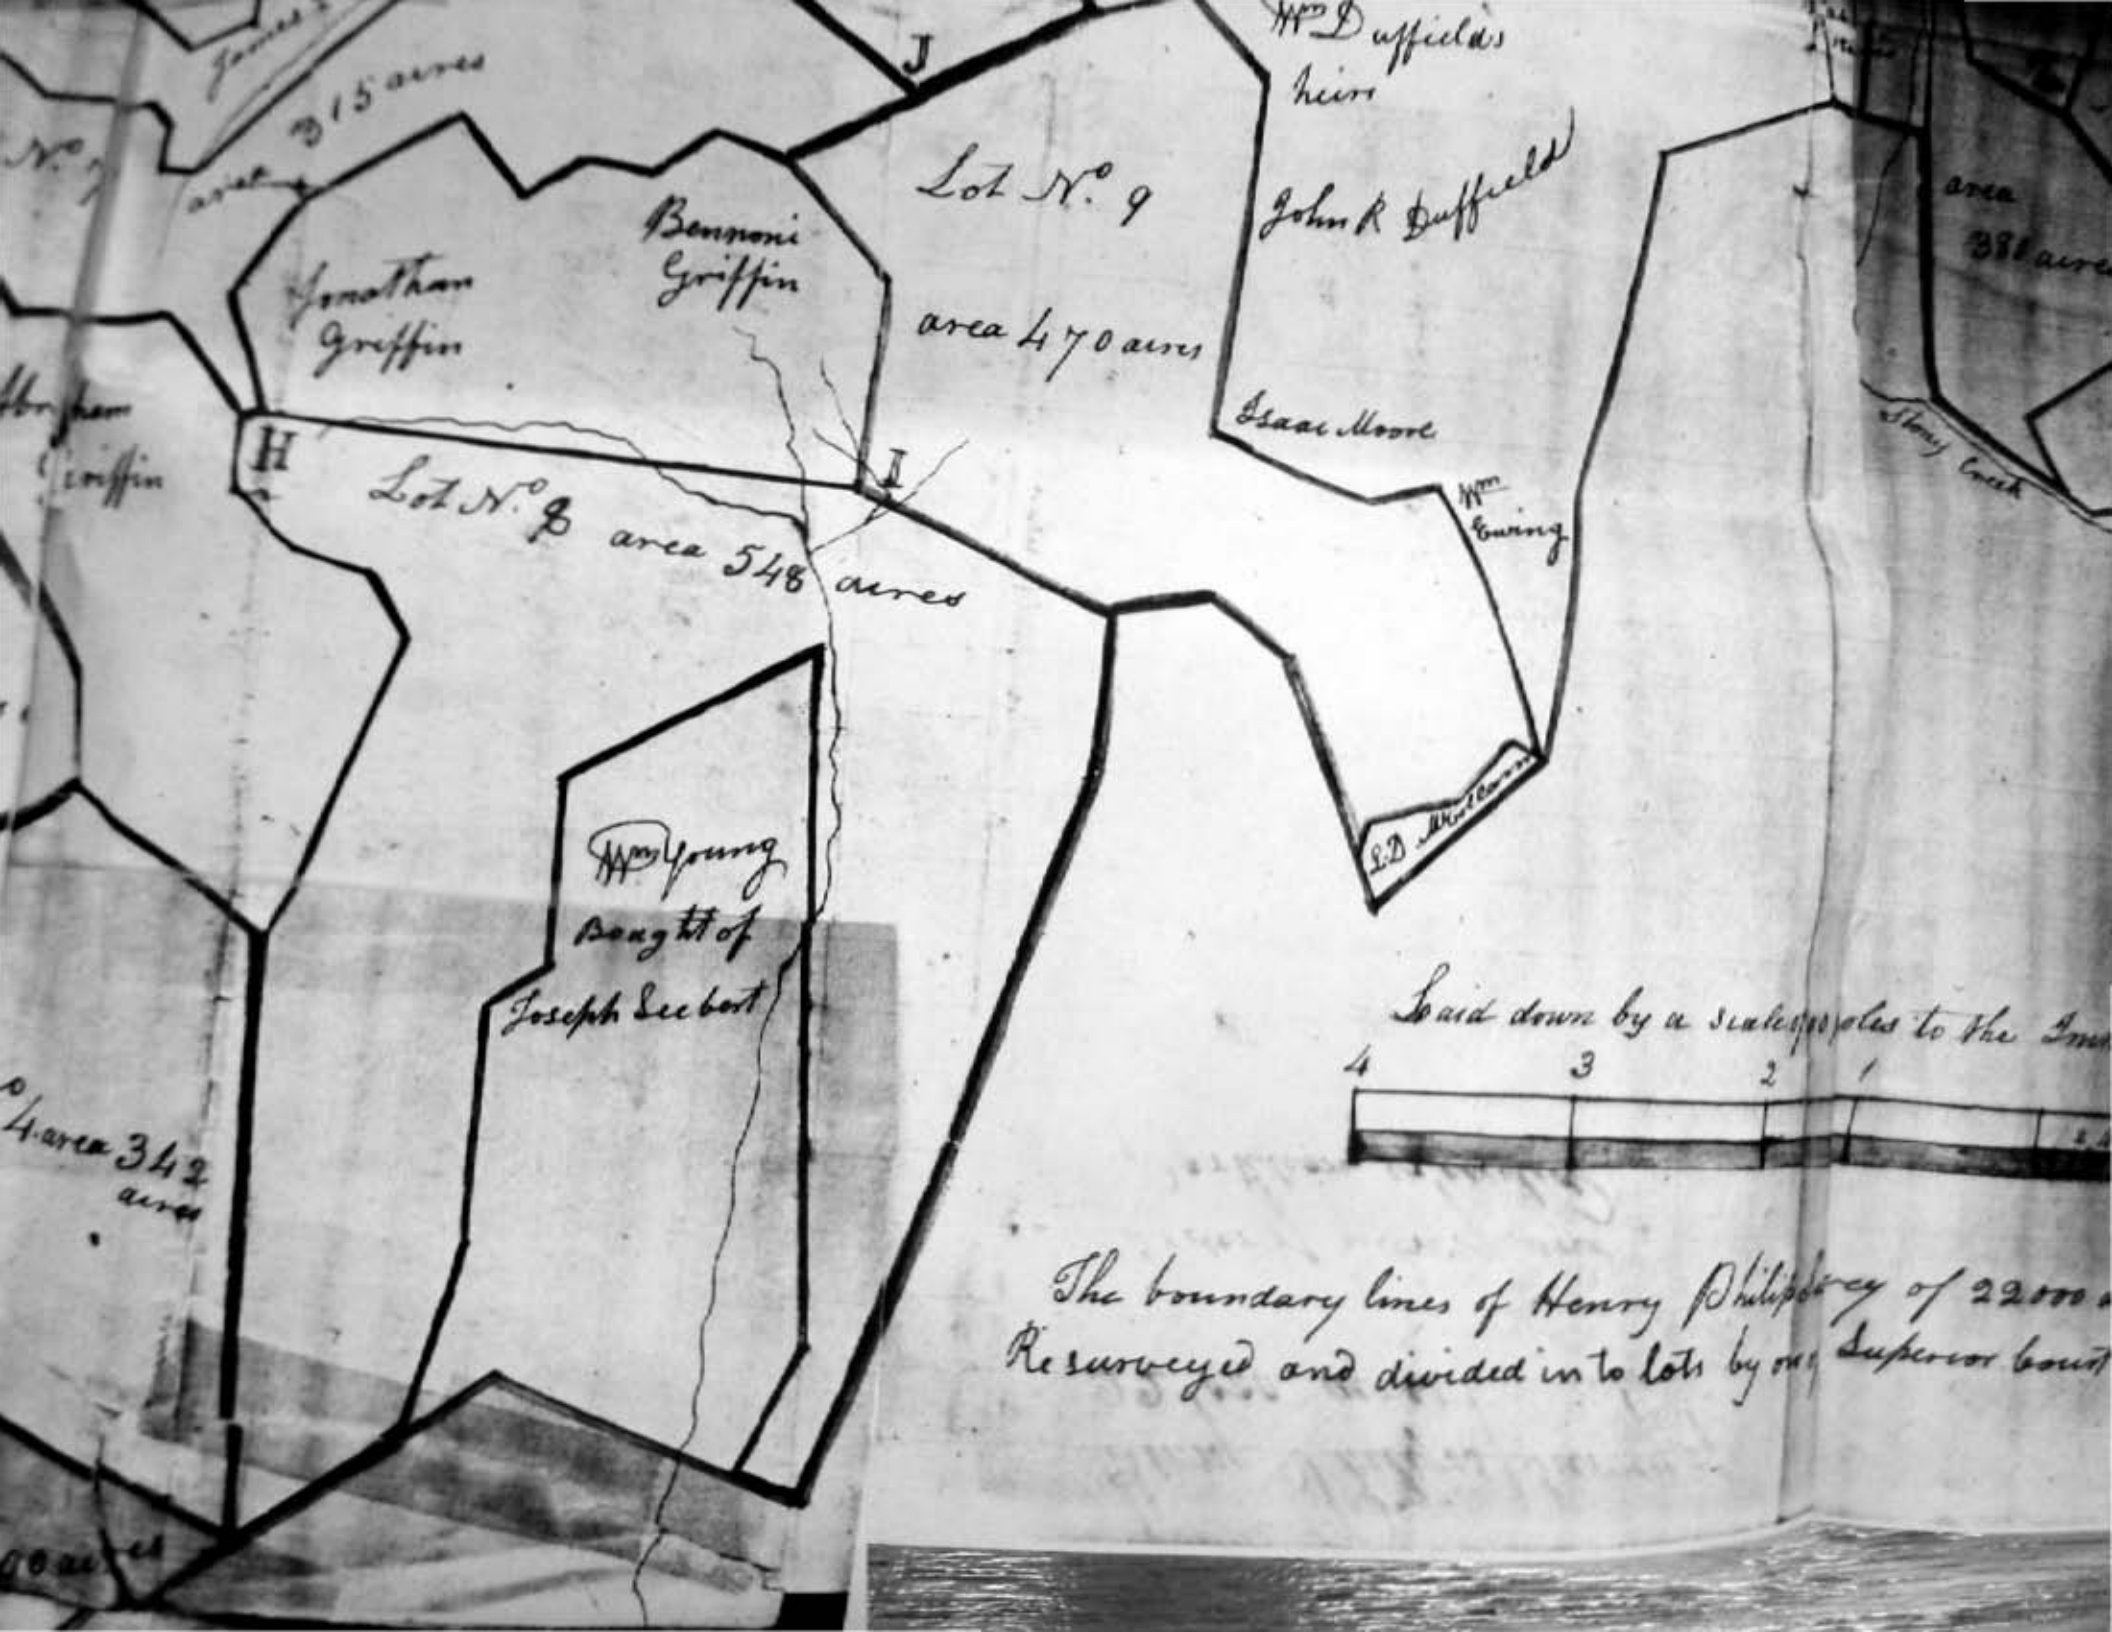 James
area 315 acres
Nº 7
J
Wm Duffields
heirs
Lot Nº. 9
John R Duffield
area
Bennoni
Griffin
Jonathan
Griffin
area 470 acres
Isaac Moore
Griffin
H
I
Lot Nº. 8 area 548 acres
Wm
Ewing
Stony Creek
L.D
Wm Young
Bought of
Joseph Seebert
Laid down by a scale poles to the
4 3 2 1
4 area 342
acres
The boundary lines of Henry of 22000
Resurveyed and divided in to lots by our Superior Court
acres